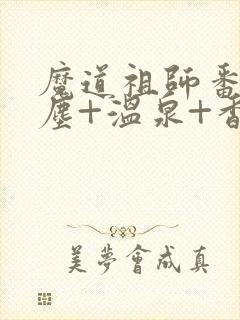 魔道祖師番
塵+溫泉+香
美夢會成真